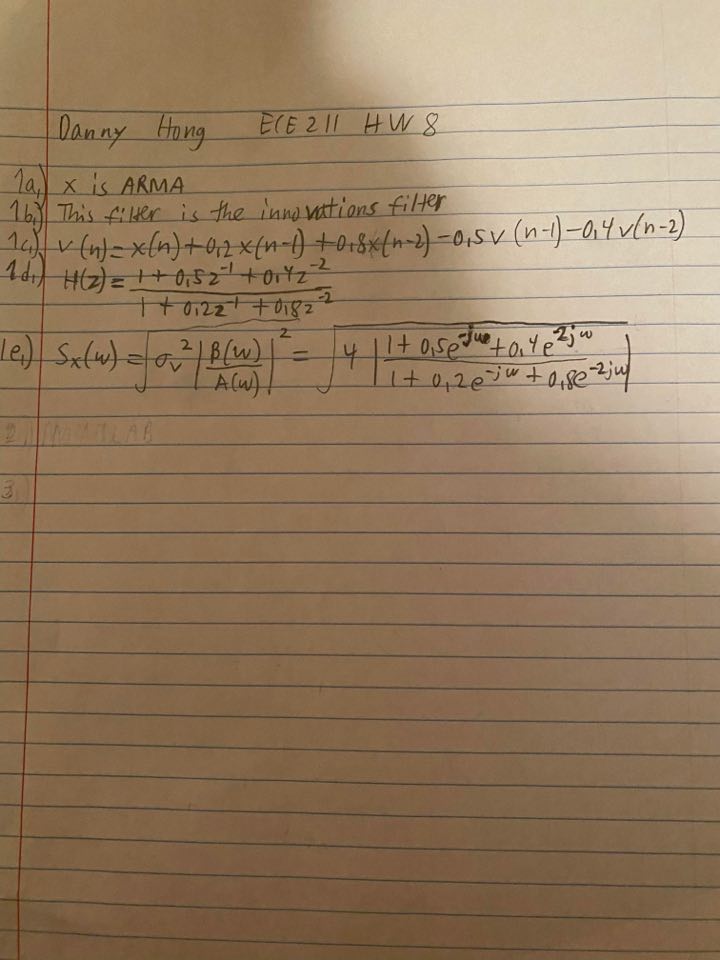 Danny Hong ECE211 HW 8
1a.) x is ARMA
1b.) This filter is the innovations filter
1c.) v(n)=x(n)+0.2x(n-1)+0.8x(n-2)-0.5v(n-1)-0.4v(n-2)
1d.) H(z)= (1+0.5z^-1+0.4z^-2)/(1+0.2z^-1+0.8z^-2)
1e.) Sx(w)=√(σv^2|B(w)/A(w)|^2)=√(4|(1+0.5e^-jw+0.4e^-2jw)/(1+0.2e^-jw+0.8e^-2jw)|)
3.)